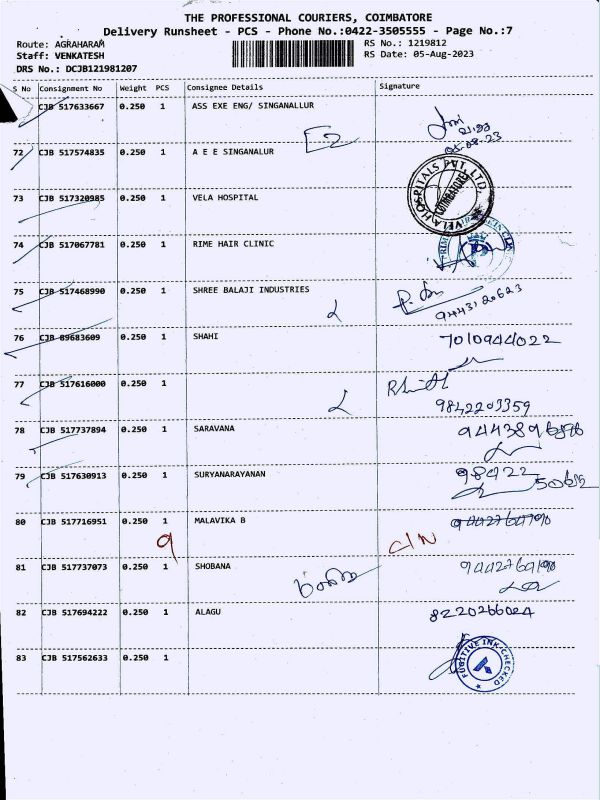 THE PROFESSIONAL COURIERS, COIMBATORE
Delivery Runsheet - PCS - Phone No.:0422-3505555 - Page No.:7
Route: AGRAHARAM
RS No.: 1219812
Staff: VENKATESH
RS Date: 05-Aug-2023
DRS No.: DCJB121981207
S No Consignment No Weight PCS Consignee Details Signature
CJB 517633667 0.250 1 ASS EXE ENG/ SINGANALLUR
05.08.23
72 CJB 517574835 0.250 1 A E E SINGANALUR
73 CJB 517320985 0.250 1 VELA HOSPITAL
VELA HOSPITALS PVT. LTD.
COIMBATORE
74 CJB 517067781 0.250 1 RIME HAIR CLINIC
75 CJB 517468990 0.250 1 SHREE BALAJI INDUSTRIES
9443120623
76 CJB 89683609 0.250 1 SHAHI 7010944022
77 CJB 517616000 0.250 1
9842203359
78 CJB 517737894 0.250 1 SARAVANA
79 CJB 517630913 0.250 1 SURYANARAYANAN 98422
80 CJB 517716951 0.250 1 MALAVIKA B
9 C/N
81 CJB 517737073 0.250 1 SHOBANA
82 CJB 517694222 0.250 1 ALAGU 8220266024
83 CJB 517562633 0.250 1
FUGITIVE INK CHECKED